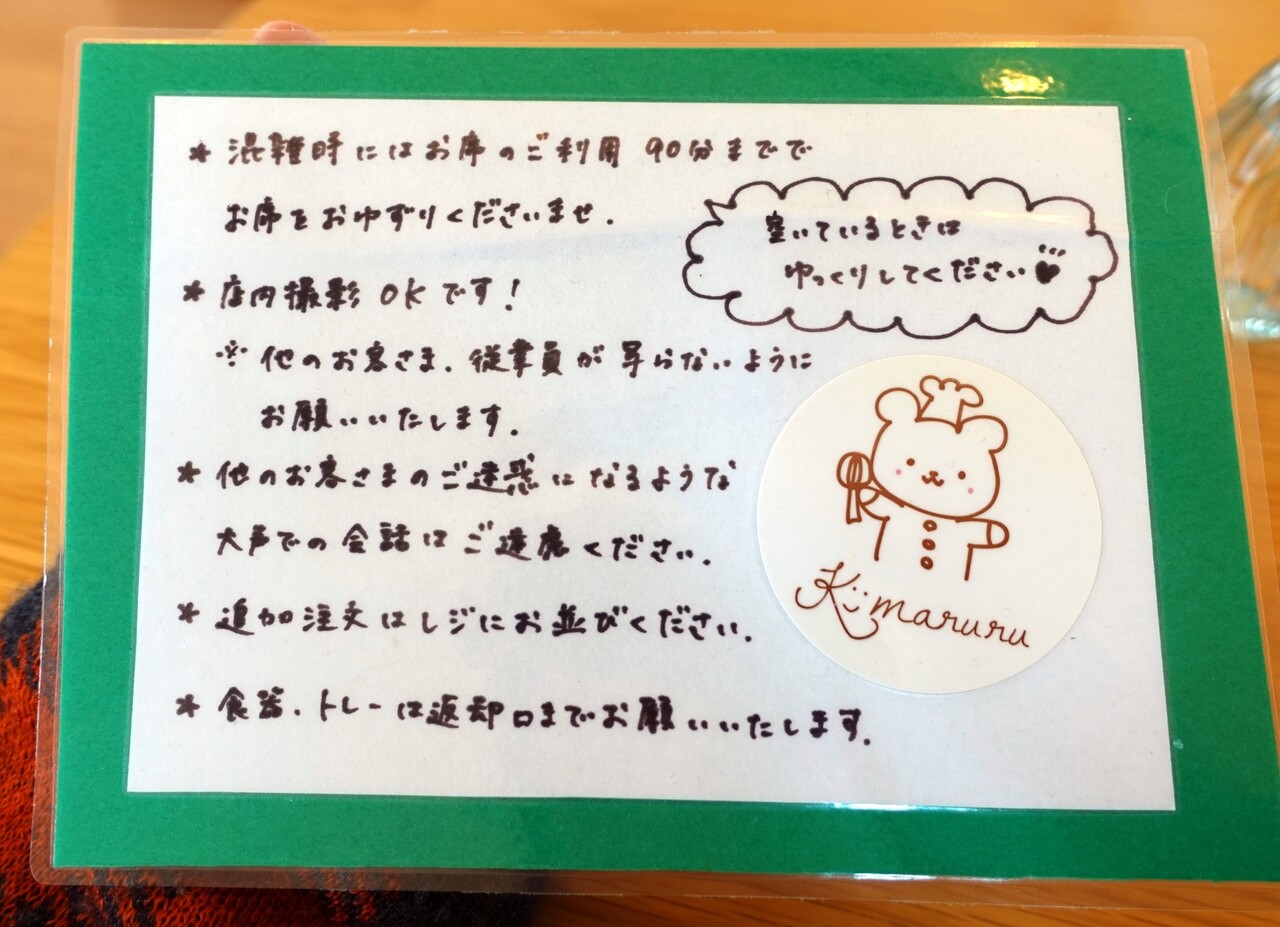 * 混雑時にはお席のご利用 90分までで
お席をおゆずりくださいませ.
空いているときは
ゆっくりしてください♥
* 店内撮影 OKです!
※ 他のお客さま、従業員が写らないように
お願いいたします.
* 他のお客さまのご迷惑になるような
大声での会話はご遠慮ください.
* 追加注文はレジにお並びください.
* 食器、トレーは返却口までお願いいたします.
Kimaruru